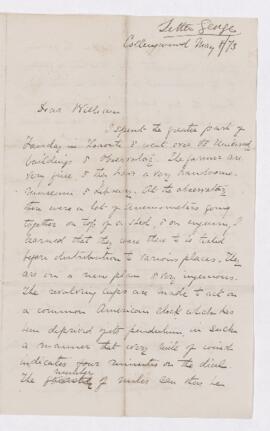 Letter George
Collingwood May 8/73
Dear William
I spent the greater part of
Tuesday in Toronto & went over the University
buildings & observatory. The former are
very fine & they have a very handsome
museum & library. At the observatory
there were a lot of anemometers going
together on top of a shed, & on enquiry I
learned that they were there to be tested
before distribution to various places. They
are on a new plan & very ingenious.
The revolving cups are made to act on
a common American clock which has
been deprived of its pendulum, in such
a manner that every mile of wind
indicates four minutes on the dial.
number
The of miles can thus be